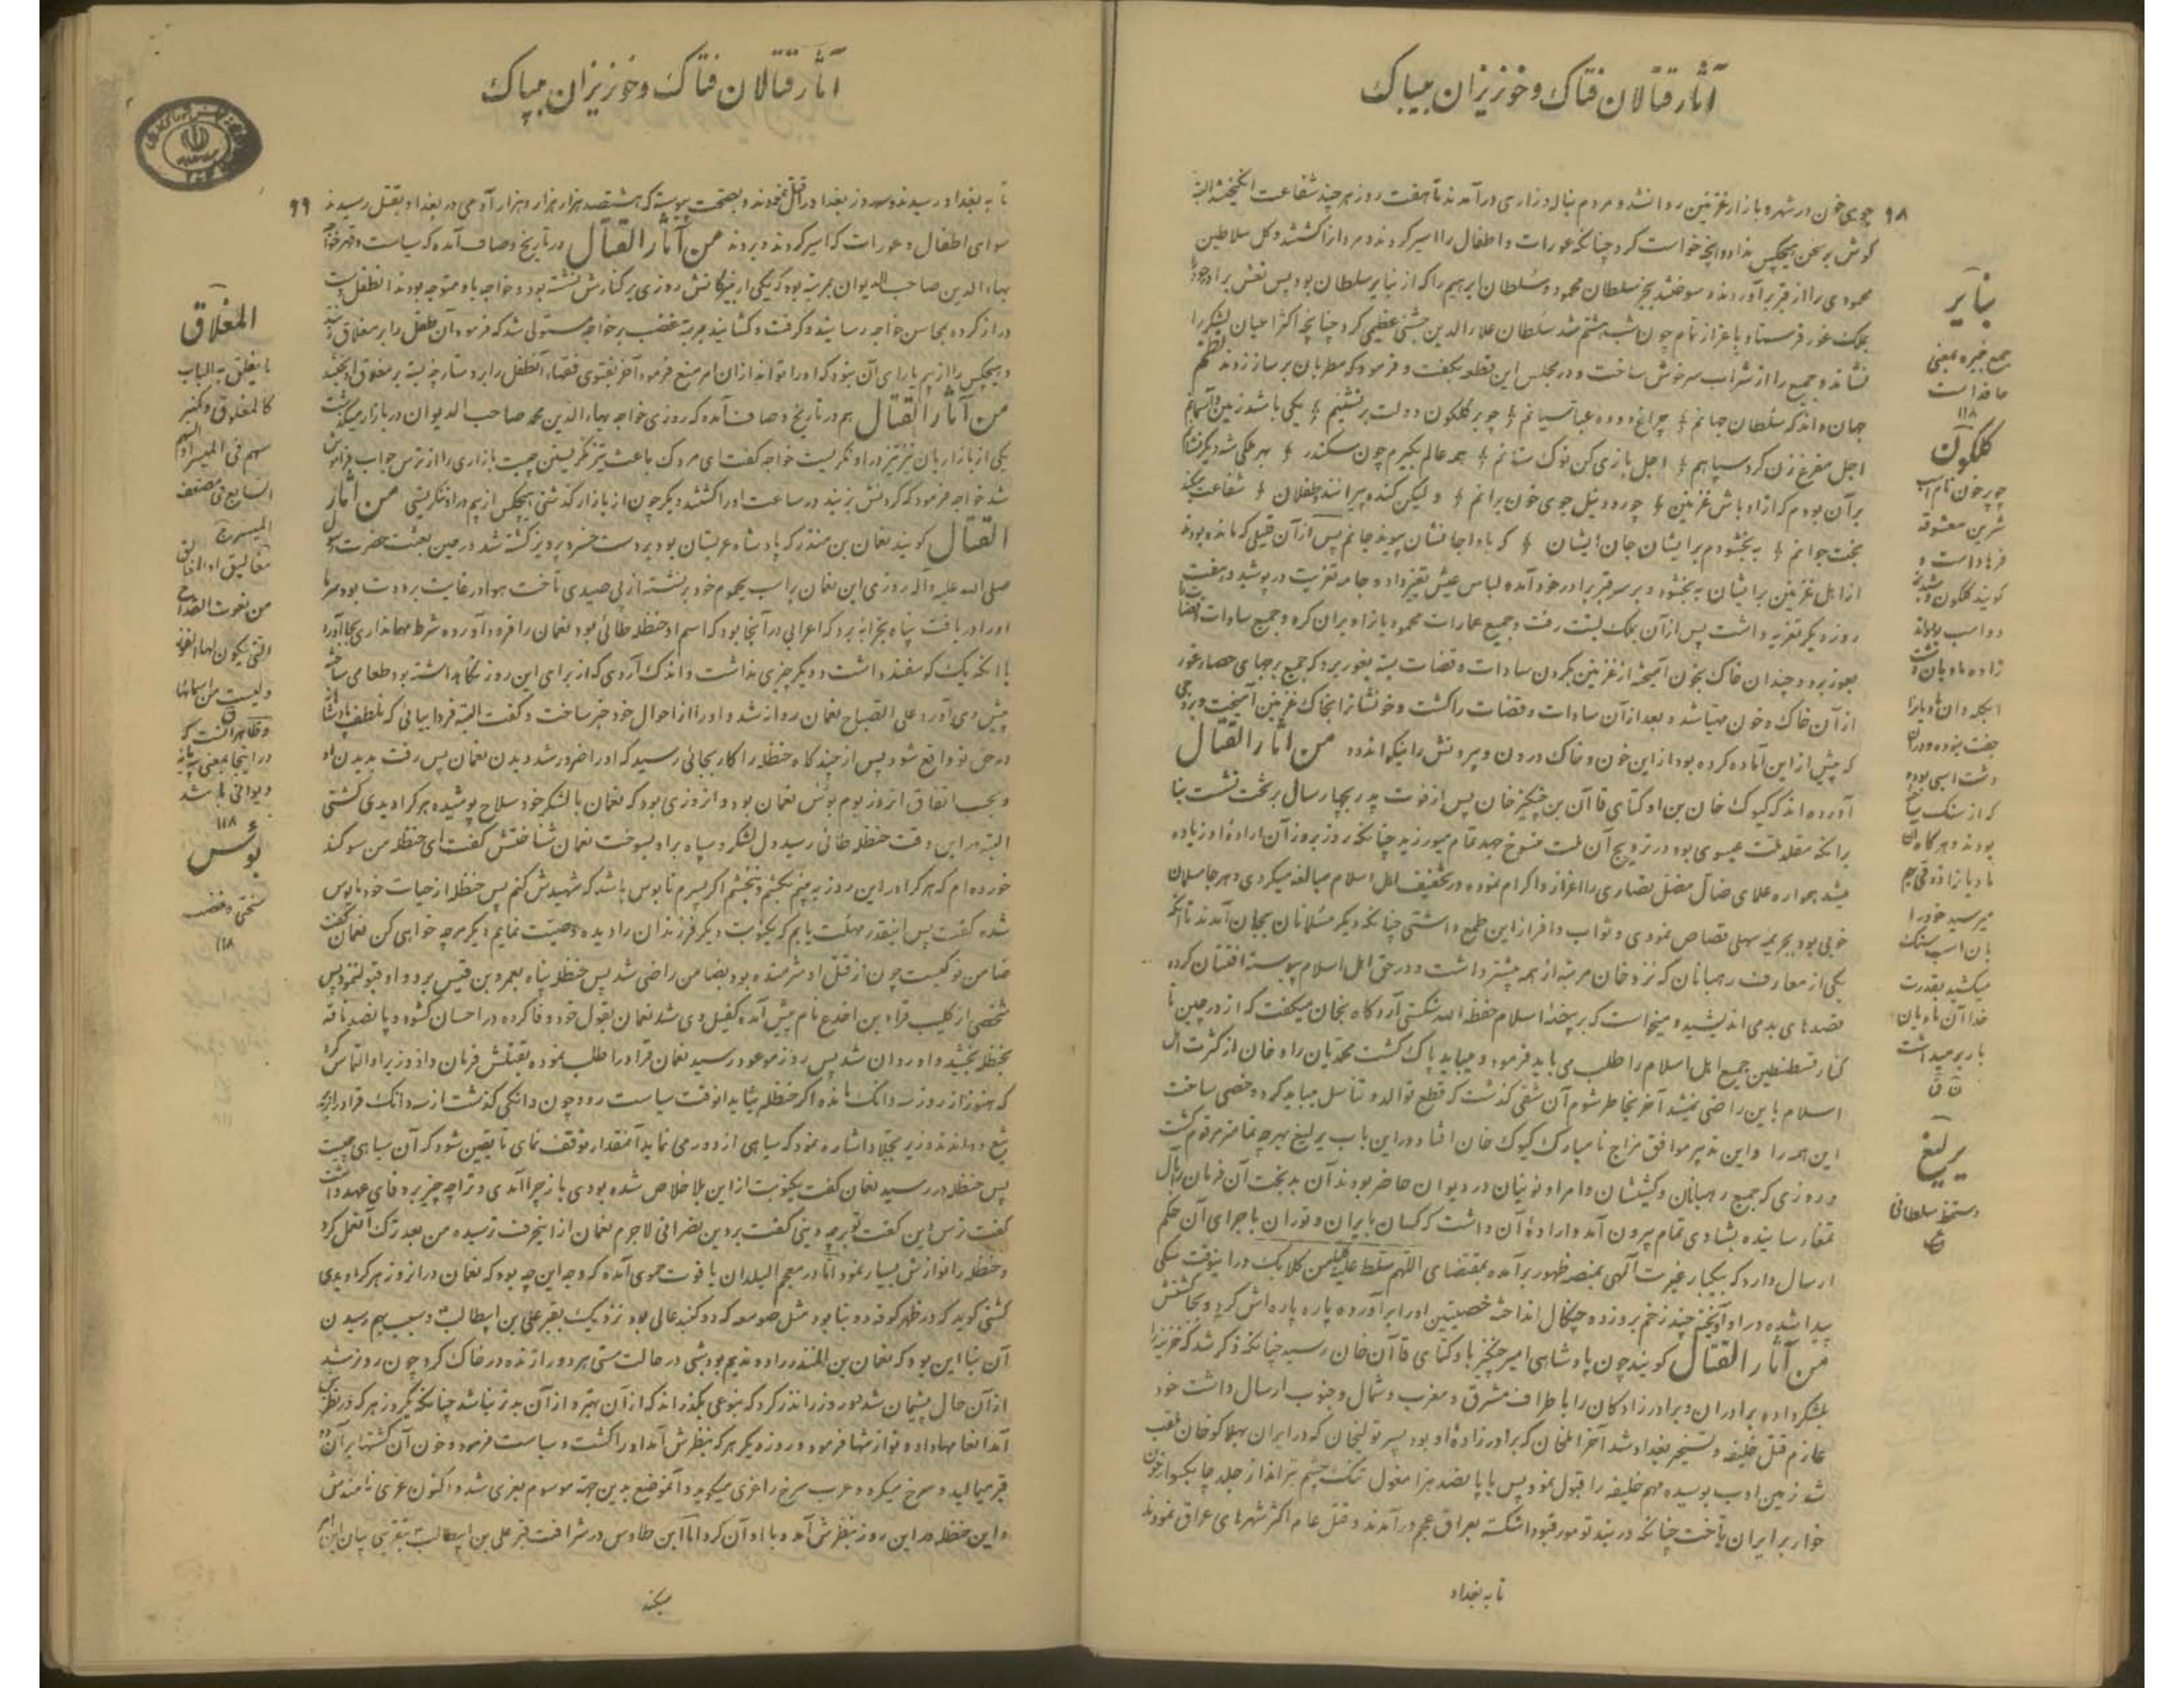 آثار قتالان فتاک و خونریزان بیباک
۹۸
جوی خون در شهر و بازار غزنین روان شد و مردم بناله و زاری در آمدند تا هفت روز هر چند شفاعت انگیختند البته
گوش بر سخن هیچکس نداد و آنچه خواست کرد چنانکه عورات و اطفال را اسیر کردند و مردانرا کشتند و کل سلاطین
محمودی را از قبر برآوردند و سوختند بجز سلطان محمود و سلطان ابرهیم را که از نبایر سلطان بود پس نعش برادر خود را
بملک غور فرستاد با عزاز تمام چون شب هشتم شد سلطان علاءالدین جشنی عظیمی کرد چنانچه اکثر اعیان لشکر را
نشاند و جمیع را از شراب سرخوش ساخت و در مجلس این قطعه بگفت و فرمود که مطربان بر ساز زدند نظم
جهان داند که سلطان جهانم چراغ دوده عباسیانم چو بر گلگون دولت برنشینم یکی باشد زمین و آسمانم
اجل مفرغ زن گرد سپاهم اجل بازی کن نوک سنانم همه عالم بگیرم چون سکندر بهر ملکی شه دیگر نشانم
بر آن بودم که از اوباش غزنین چو رود نیل جوی خون برانم ولیکن گنده پیرانند و طفلان شفاعت میکند
بخت جوانم به بخشودم بر ایشان جان ایشان که بادا جانشان پیوند جانم پس از آن قلیلی که مانده بودند
از اهل غزنین بر ایشان به بخشود و بر سر قبر برادر خود آمده لباس عیش تغیر داد و جامه تعزیت در پوشید و هفت
روز دیگر تعزیه داشت پس از آن بملک بست رفت و جمیع عمارات محمود بازا ویران کرد و جمیع سادات و قضات را
بغور برد و چندان خاک بخون آمیخته از غزنین بگردن سادات و قضات بسته بغور برد که جمیع برجهای حصار غور
از آن خاک و خون مهیا شد و بعد از آن سادات و قضات را کشت و خونشانرا بخاک غزنین آمیخت و برجی
که پیش از این آماده کرده بود از این خون و خاک درون و بیرونش را نیکو اندود من آثار القتال
آورده اند که کیوک خان بن اوکتای قاآن بن چنگیز خان پس از فوت پدر بچهار سال بر تخت نشست بنا
برآنکه مقلد ملت عیسوی بود در ترویج آن ملت منسوخ جهد تمام میورزید چنانکه روز بروز آن اراده او زیاده
میشد همواره علمای ضال مضل نصاری را اعزاز و اکرام نموده در تخفیف اهل اسلام مبالغه میکردی و هر جا مسلمان
خوبی بود بجریمه سهلی قصاص نمودی و ثواب وافر از این طمع داشتی چنانکه دیگر مسلمانان بجان آمدند تا آنکه
یکی از معارف رهبانان که نزد خان مرتبه از همه بیشتر داشت و در حق اهل اسلام پیوسته افتنان کرده
قصدهای بد می اندیشید و میخواست که بر بیخه اسلام حفظه الله شکستی آرد گاه بخان میگفت که از در چین تا
کنار قسطنطین جمیع اهل اسلام را طلب می باید فرمود و میباید پاک کشت محمدیان را و خان از کثرت اهل
اسلام باین راضی نمیشد آخر بخاطر شوم آن شقی گذشت که قطع توالد و تناسل میباید کرد و خصی ساخت
این همه را و این تدبیر موافق مزاج نامبارک کیوک خان افتاد و در این باب یرلیغ بهرچه تمامتر مرقوم گشت
و روزی که جمیع رهبانان و کشیشان و امراء و نوینیان در دیوان حاضر بودند آن بدبخت آن فرمان را بآل
تمغا رسانیده بشادی تمام بیرون آمد و اراده آن داشت که کسان بایران و توران با جرای آن حکم
ارسال دارد که بیکبار غیرت آلهی بمنصه ظهور برآمده بمقتضای اللهم سلط علیه کلب من کلابک در اینوقت سگی
پیدا شده در او آویخته چند زخم بر او زده چنگال انداخته خصیتین او را برآورده پاره پاره اش کرد و بجا کشتش
من آثار القتال گویند چون پادشاهی امیر چنگیز باوکتای قاآن خان رسید چنانکه ذکر شد که خزینه را
بلشکر داده برادران و برادر زادگان را با طراف مشرق و مغرب و شمال و جنوب ارسال داشت خود
عازم قتل خلیفه و تسخیر بغداد شد آخر ایلخان که برادر زاده او بود پسر تولیخان که در ایران بهلاکوخان ملقب
شد زمین ادب بوسیده مهم خلیفه را قبول نمود پس با پانصد هزار مغول تنگ چشم تیرانداز جلد چابکسوار خون
خوار بر ایران تاخت چنانکه دربند تومور قپو را شکسته بعراق عجم درآمدند و قتل عام اکثر شهرهای عراق نمودند
تا به بغداد
نبایر
جمع نبیره بمعنی
حافد است
۱۱۸
گلگون
چو چون نام اسب
شیرین معشوقه
فرهاد است و
گویند گلگون و شبدیز
دو اسب بودند
زاده مادیان دشت
جفت نبوده و در آن
دشت اسبی بوده
که از سنگ ساخته
بودند و هر گاه آن
مادیانرا ذوقی بهم
میرسید خود را
بان اسب سنگ
میکشید بقدرت
خدا آن مادیان
بار برمیداشت
ن ق
یرلیغ
دستخط سلطانی
آثار قتالان فتاک و خونریزان بیباک
۹۹
تا به بغداد رسیدند و سه روز بغداد را قتل نمودند و بصحت پیوسته که هشتصد هزار هزار و هزار آدمی در بغداد بقتل رسیدند
سوای اطفال و عورات که اسیر کردند و بردند من آثار القتال در تاریخ وصاف آمده که سیاست و قهر خواجه
بهاءالدین صاحب الدیوان بمرتبه بود که یکی از نبیرگانش روزی بر کنارش نشسته بود و خواجه باو متوجه بودند آنطفل دست
دراز کرده بمحاسن خواجه رسانید و گرفت و کشانید بمرتبه غضب بر خواجه مستولی شد که فرمود آن طفل را بر مغلاق زنند
و هیچکس را از بیم یارای آن نبود که او را تواند از ان امر منع فرمود آخر بفتوی قضاء آنطفل را بر دستارچه بسته بر مغلاق آویختند
من آثار القتال هم در تاریخ وصاف آمده که روزی خواجه بهاءالدین محمد صاحب الدیوان در بازار میگذشت
یکی از بازاریان تیز تیز در او نگریست خواجه گفت ای مردک باعث تیز نگریستن چیست بازاری را از ترس جواب فراموش
شد خواجه فرمود که گردنش بزنید در ساعت او را کشتند دیگر چون از بازار گذشتی هیچکس از بیم در او ننگریستی من آثار
القتال گویند نعمان بن منذر که پادشاه عربستان بود بر دست خسرو پرویز کشته شد در حین بعثت حضرت رسول
صلی الله علیه وآله روزی این نعمان بر اسب یحموم خود برنشسته از پی صیدی تاخت هوا در غایت برودت بود سرما
او را دریافت پناه بخرابه برد که اعرابی در آنجا بود که اسم او حنظله طائی بود نعمان را فرود آورده شرط مهمانداری بجا آورد
با آنکه یک گوسفند داشت و دیگر چیزی نداشت و اندک آردی که از برای این روز نگاهداشته بود طعامی ساخته
پیش وی آورد علی الصباح نعمان روانه شد و او را از احوال خود خبر ساخت و گفت البته فردا بیائی که لطف پادشاهانه
در حق تو واقع شود پس از چند گاه حنظله را کار بجائی رسید که او را ضرور شد دیدن نعمان پس رفت بدیدن او
و بحسب اتفاق آنروز یوم بؤس نعمان بود و آنروزی بود که نعمان با لشکر خود سلاح پوشیده هر کرا دیدی کشتی
البته در این وقت حنظله طائی رسید دل لشکر و سپاه بر او بسوخت نعمان شناختش گفت ای حنظله من سوگند
خورده ام که هر کرا در این روز به بینم بکشم و نبخشم اگر پسرم قابوس باشد که شهیدش کنم پس حنظله از حیات خود مایوس
شده گفت پس اینقدر مهلت یابم که یکنوبت دیگر فرزندان را دیده وصیت نمایم دیگر هر چه خواهی کن نعمان گفت
ضامن تو کیست چون از قتل او شرمنده بود بضامن راضی شد پس حنظله پناه بعمرو بن قیس برد و او قبول ننمود پس
شخصی از کلیب قراد بن اخدع نام پیش آمده کفیل وی شد نعمان بقول خود وفا کرده در احسان گشوده پانصد ناقه
بحنظله بخشید و او روان شد پس روز موعود رسید نعمان قراد را طلب نموده بقتلش فرمان داد وزیر او التماس کرد
که هنوز از روز سه دانگ مانده اگر حنظله نیاید آنوقت سیاست رود چون دانگی گذشت از سه دانگ قراد را بزیر
تیغ دواندند وزیر بجلاد اشاره نمود که سیاهی از دور می نماید آنمقدار توقف نمای تا یقین شود که آن سیاهی چیست
پس حنظله در رسید نعمان گفت یکنوبت از این بلا خلاص شده بودی باز چرا آمدی و ترا چه چیز بر وفای عهد داشت
گفت ترس دین گفت تو بر چه دینی گفت بر دین نصرانی لاجرم نعمان از اینحرف ترسیده من بعد ترک آنعمل کرد
و حنظله را نوازش بسیار نمود اما در معجم البلدان یاقوت حموی آمده که وجه این چه بود که نعمان در آنروز هر کرا دیدی
کشتی گوید که در ظهر کوفه دو بنا بود مثل صومعه که دو گنبد عالی بود نزدیک بقبر علی بن ابیطالب و سبب بهم رسیدن
آن بنا این بود که نعمان بن المنذر را دو ندیم بود شبی در حالت مستی هر دو را زنده در خاک کرد چون روز شد
از آن حال پشیمان شد دو روز را نذر کرد که بنوعی بگذراند که از آن بهتر و از آن بدتر نباشد چنانکه یکروز هر که در نظرش
آمد انعامها داد و نوازشها فرمود و روز دیگر هر که بنظرش آمد او را کشت و سیاست فرمود و خون آن کشته بر آن دو
قبر میمالید و سرخ میکرد و عرب سرخ را غری میگوید و آنموضع بدین جهة موسوم بغری شد و اکنون غری نامندش
و این حنظله در این روز بنظرش آمد و با او آن کرد اما ابن طاوس در شرافت قبر علی بن ابیطالب بتقریبی بیان این امر
میکند
المغلاق
ما یغلق به الباب
کالمغلوق و کمنبر
سهم فی المیسر او السهم
السابع فی مضعف
المیسر ج
مغالیق او المغالق
من نعوت القداح
التی یکون لها الفوز
ولیست من اسمائها
ق
و ظاهر آنست که
در اینجا بمعنی پایه
و یواقی باشد
۱۱۸
بؤس
سختی و غضب
۱۱۸